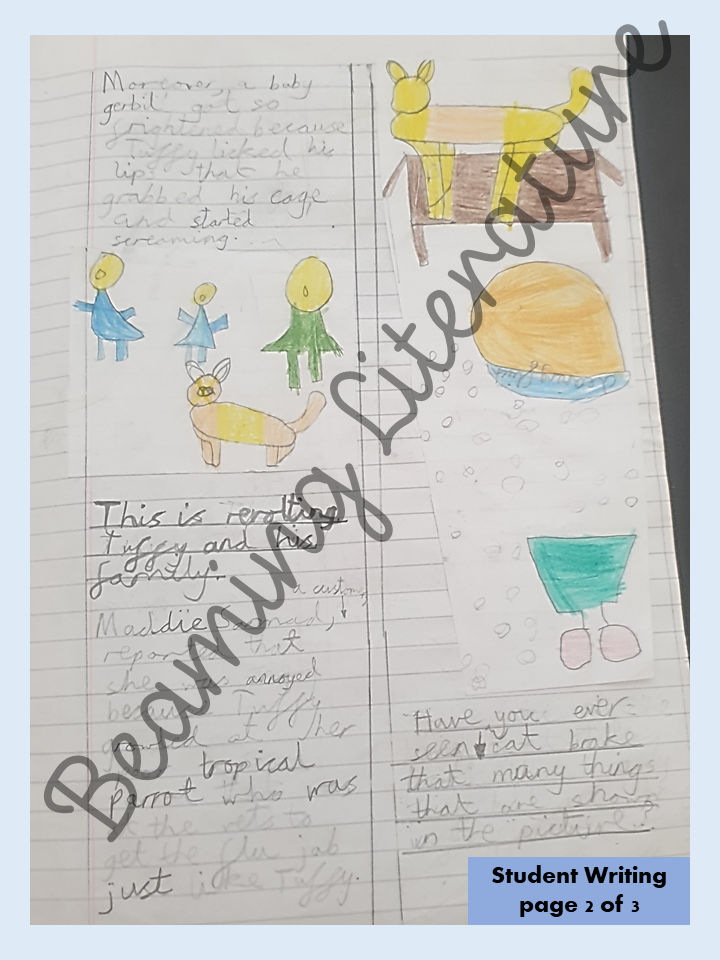 Moreover, a baby
gerbil got so
frightened because
Tuffy licked his
lips that he
grabbed his cage
and started
screaming.
This is revolting
Tuffy and his
family.
a custom
Maddie
reported that
she was annoyed
because Tuffy
growled at her
tropical
parrot who was
at the vets to
get the flu jab
just like Tuffy.
Have you ever
seen cat brake
that many things
that are shown
in the picture?
Beaming Literature
Student Writing
page 2 of 3